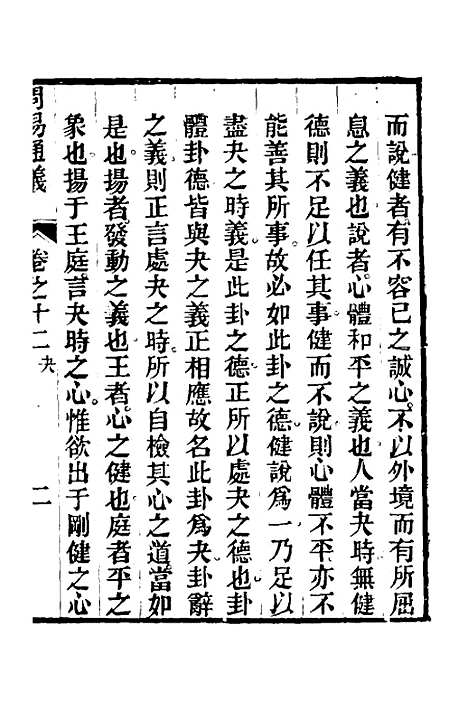 而說健者有不容已之誠心不以外境而有所屈
息之義也說者心體和平之義也人當夬時無健
德則不足以任其事健而不說則心體不平亦不
能善其所事故必如此卦之德健說爲一乃足以
盡夬之時義是此卦之德正所以處夬之德也卦
體卦德皆與夬之義正相應故名此卦爲夬卦辭
之義則正言處夬之時所以自檢其心之道當如
是也揚者發動之義也王者心之健也庭者平之
象也揚于王庭言夬時之心惟欲出于剛健之心
周易通義 卷之十二 夬 二